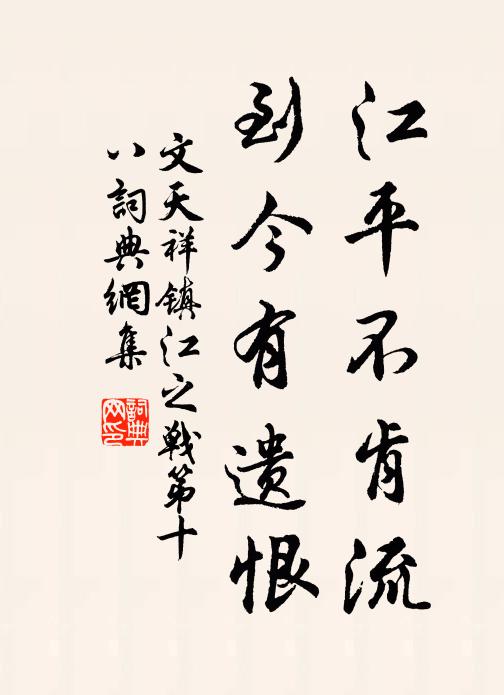 江平不肯流
到今有遗恨
文天祥镇江之戰第十
八詞典網集
詞典
网印